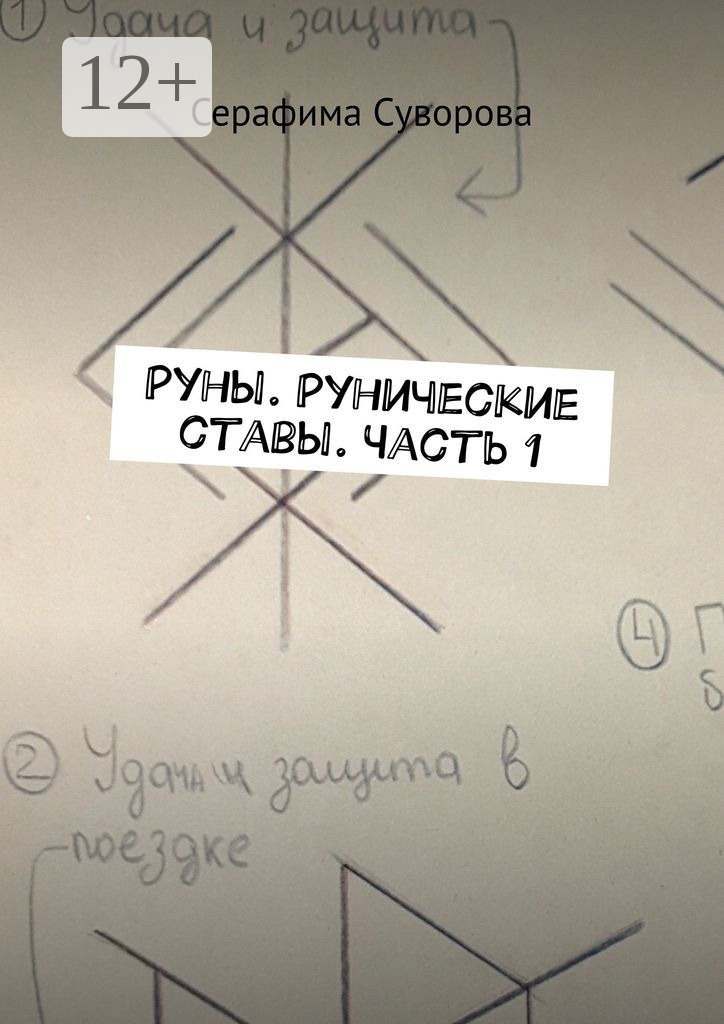 1 Удача и защита
12+
Серафима Суворова
РУНЫ. РУНИЧЕСКИЕ
СТАВЫ. ЧАСТЬ 1
4 П
б
2 Удача и защита в
поездке